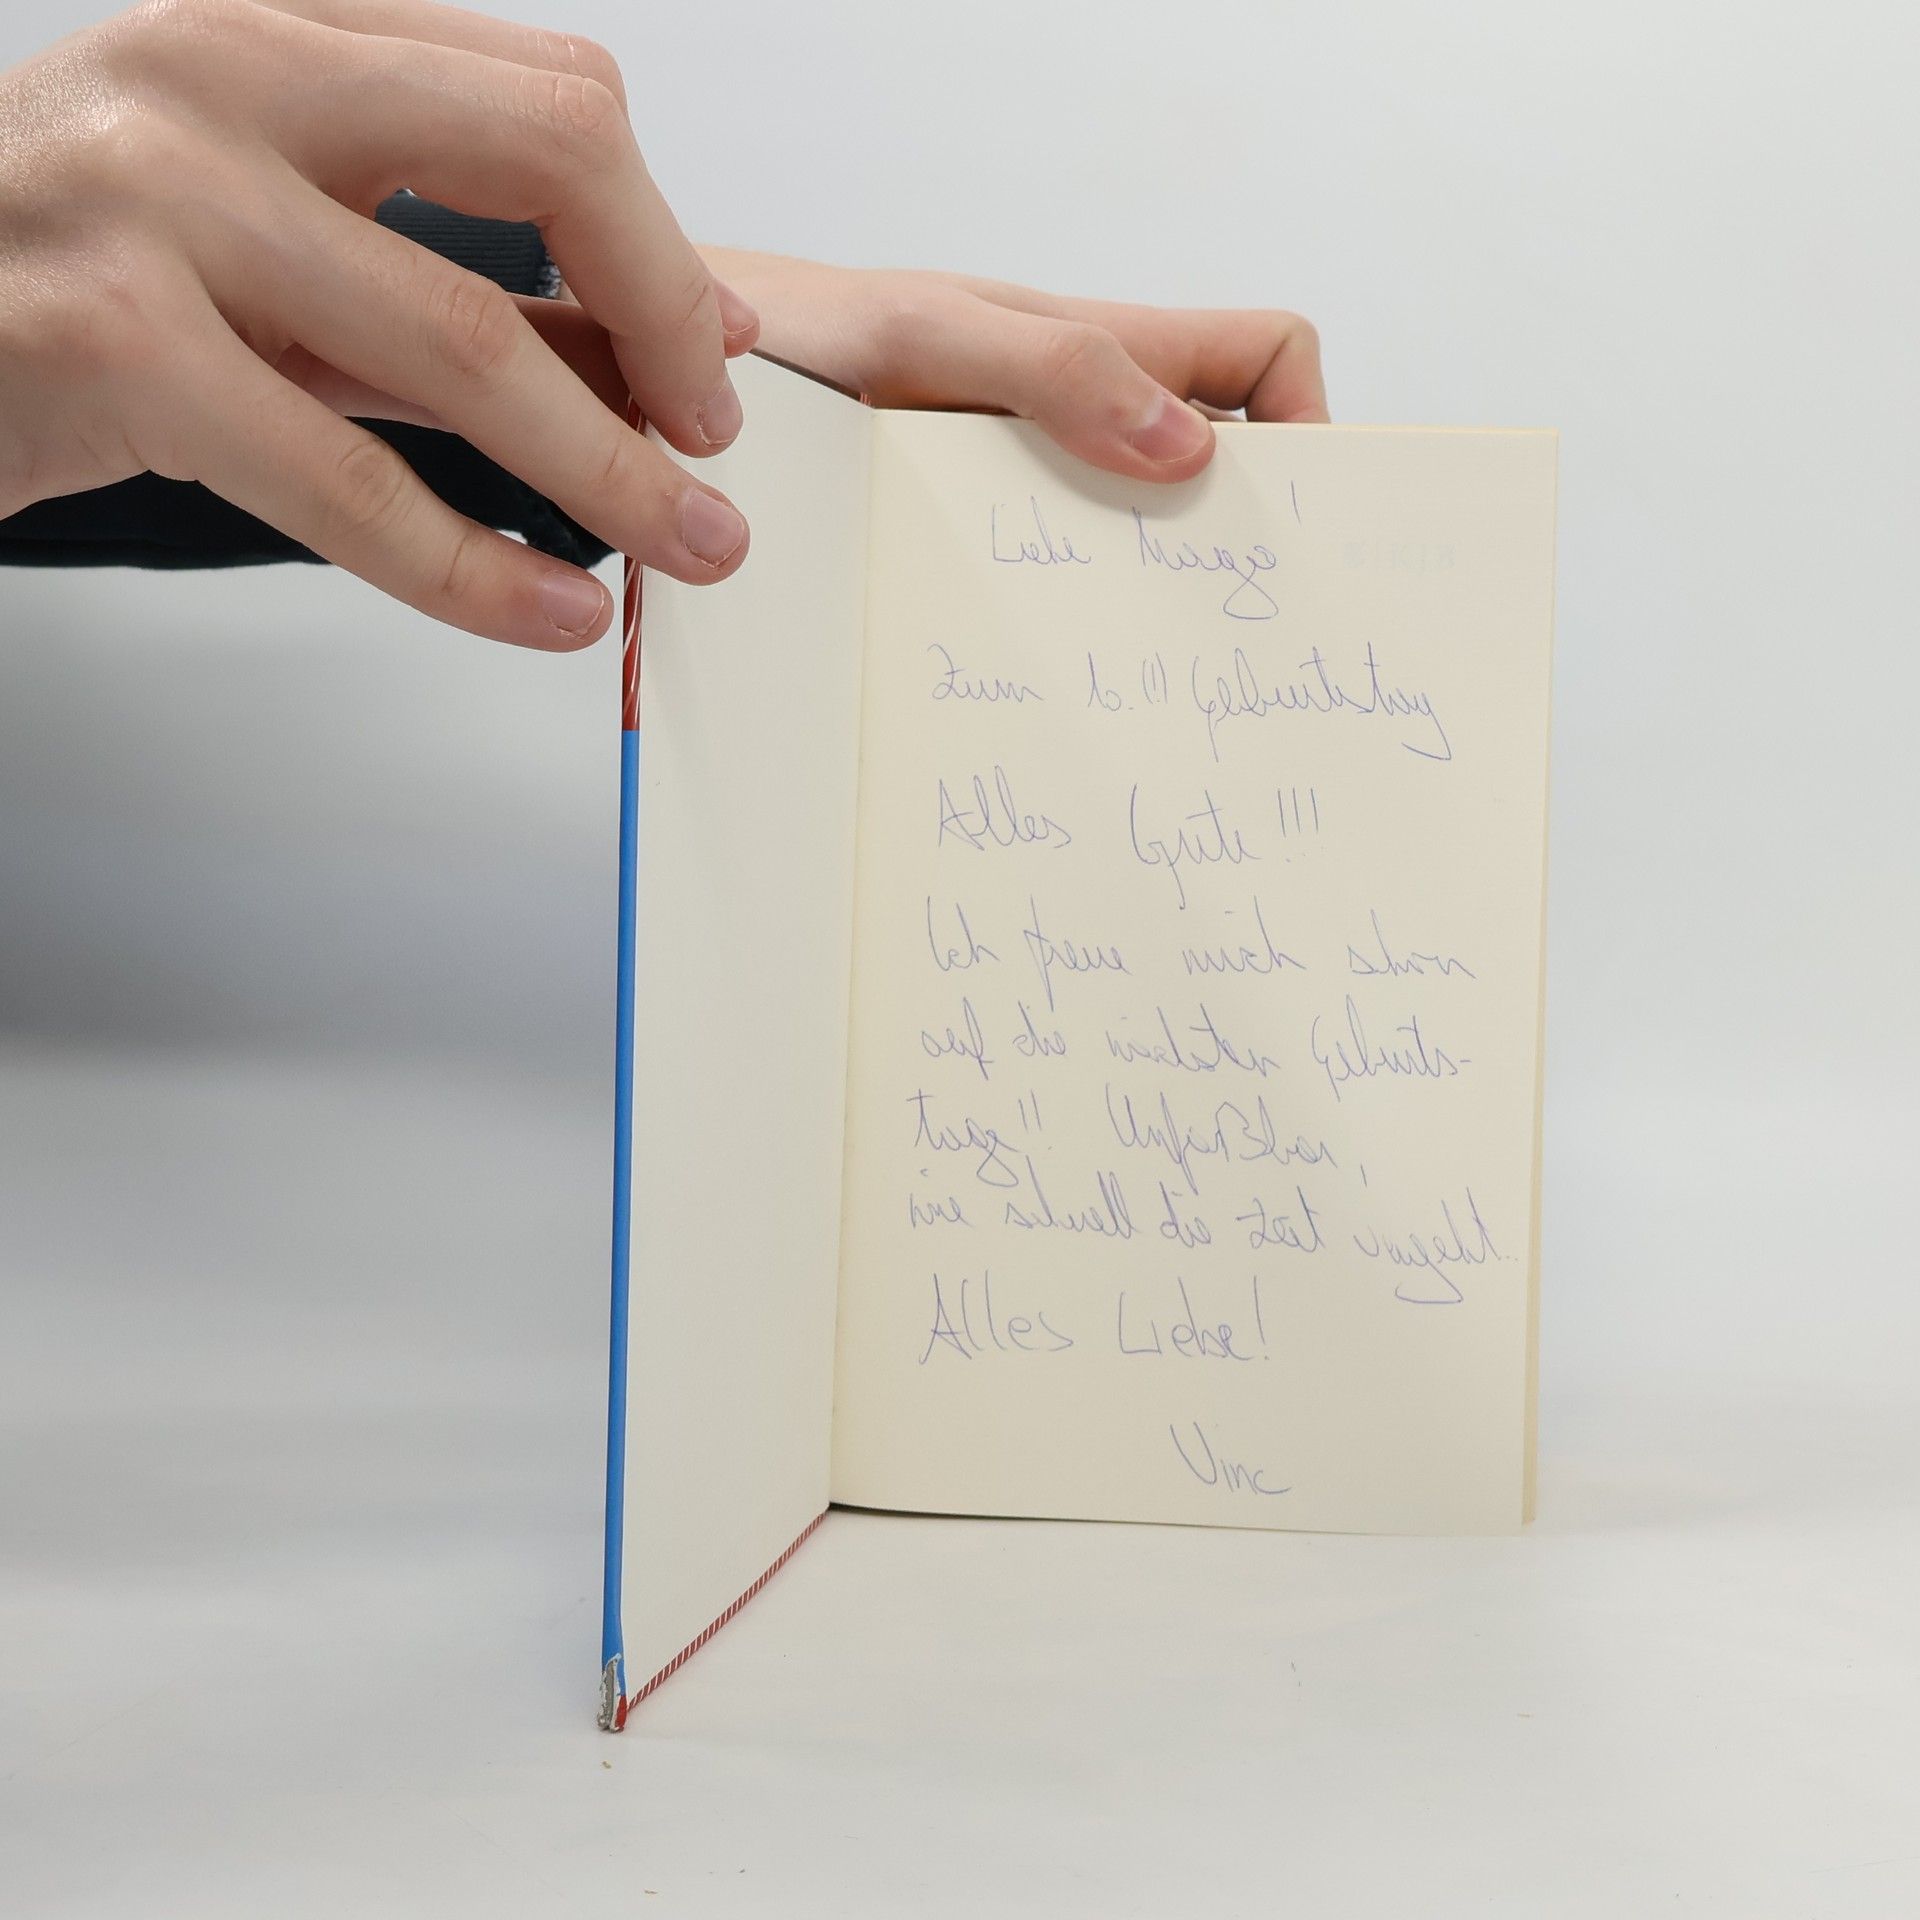 Liebe Margo!
Zum 16. !!! Geburtstag
Alles Gute !!!
Ich freue mich schon
auf die nächsten Geburts-
tage!! Unfaßbar,
wie schnell die Zeit vergeht..
Alles Liebe!
Vinc